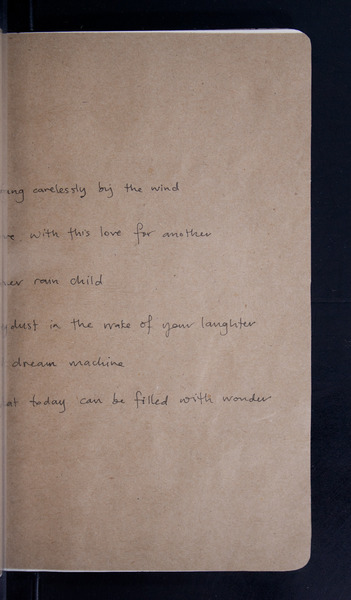 carelessly by the wind
with this love for another
rain child
dust in the wake of your laughter
dream machine
today can be filled with wonder